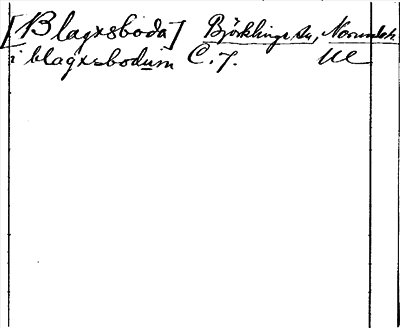 [Blagxsboda] Björklinge sn, Norunda h
i blagxsbodum C. 7. Ul